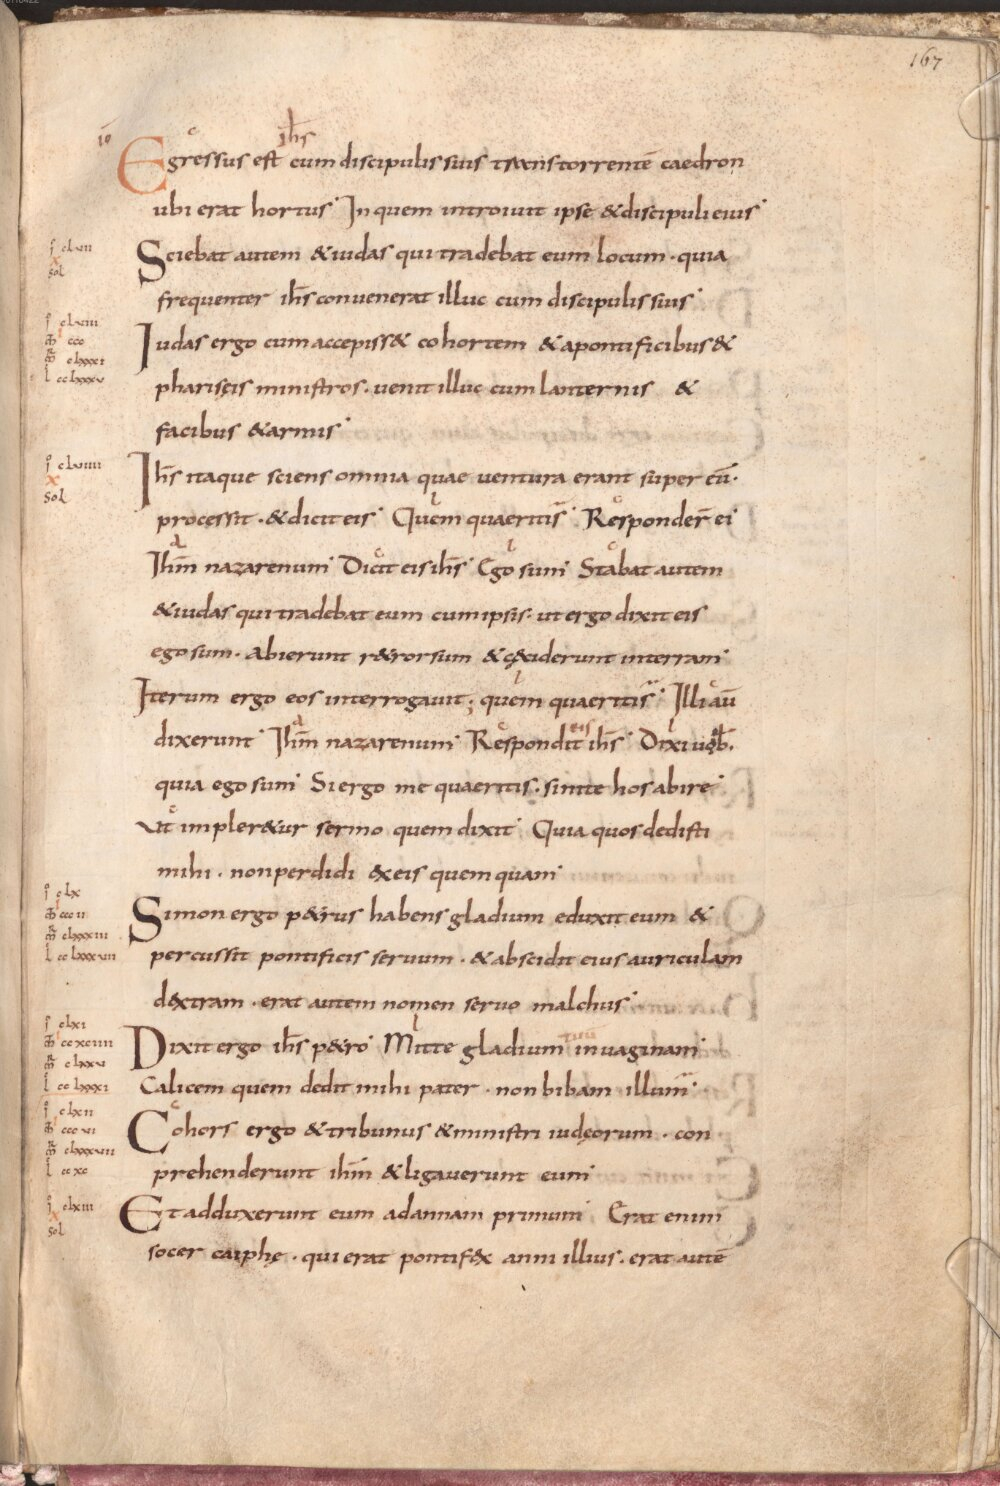 167
ih̄s
Egressus est cum discipulis suis trans torrentē caedron
ubi erat hortus In quem introiuit ipse & discipuli eius
Sciebat autem & iudas qui tradebat eum locum · quia
frequenter ih̄s conuenerat illuc cum discipulis suis
Iudas ergo cum accepiss& cohortem & a pontificibus &
pharisęis ministros · uenit illuc cum lanternis &
facibus & armis
Ih̄s itaque sciens omnia quae uentura erant super eū ·
processit · & dicit eis Quem quaeritis Responder̄ ei
Ih̄m nazarenum Dicit eis ih̄s Ego sum Stabat autem
& iudas qui tradebat eum cum ipsis · ut ergo dixit eis
ego sum · abierunt r&rorsum & c&ciderunt in terram
Iterum ergo eos interrogauit ; quem quaeritis Illi aū
eis
dixerunt Ih̄m nazarenum Respondit ih̄s Dixi uob̄ ·
quia ego sum Si ergo me quaeritis · sinite hos abire
Ut impler&ur sermo quem dixit Quia quos dedisti
mihi · non perdidi & eis quemquam
Simon ergo p&rus habens gladium eduxit eum &
percussit pontificis seruum · & abscidit eius auriculam
d&xtram · erat autem nomen seruo malchus
tuū
Dixit ergo ih̄s p&ro Mitte gladium in uaginam
Calicem quem dedit mihi pater · non bibam illum
Cohors ergo & tribunus & ministri iudęorum · con
prehenderunt ih̄m & ligauerunt eum
Et adduxerunt eum ad annam primum Erat enim
socer caiphę · qui erat pontif&x anni illius · erat autē
iō
clvii
x
sol
clviii
ccc
clxxxi
cclxxxv
clviiii
x
sol
clx
cccii
clxxxiii
cclxxxvii
clxi
ccxciiii
clxxv
cclxxxi
clxii
cccvi
clxxxvii
ccxc
clxiii
x
sol